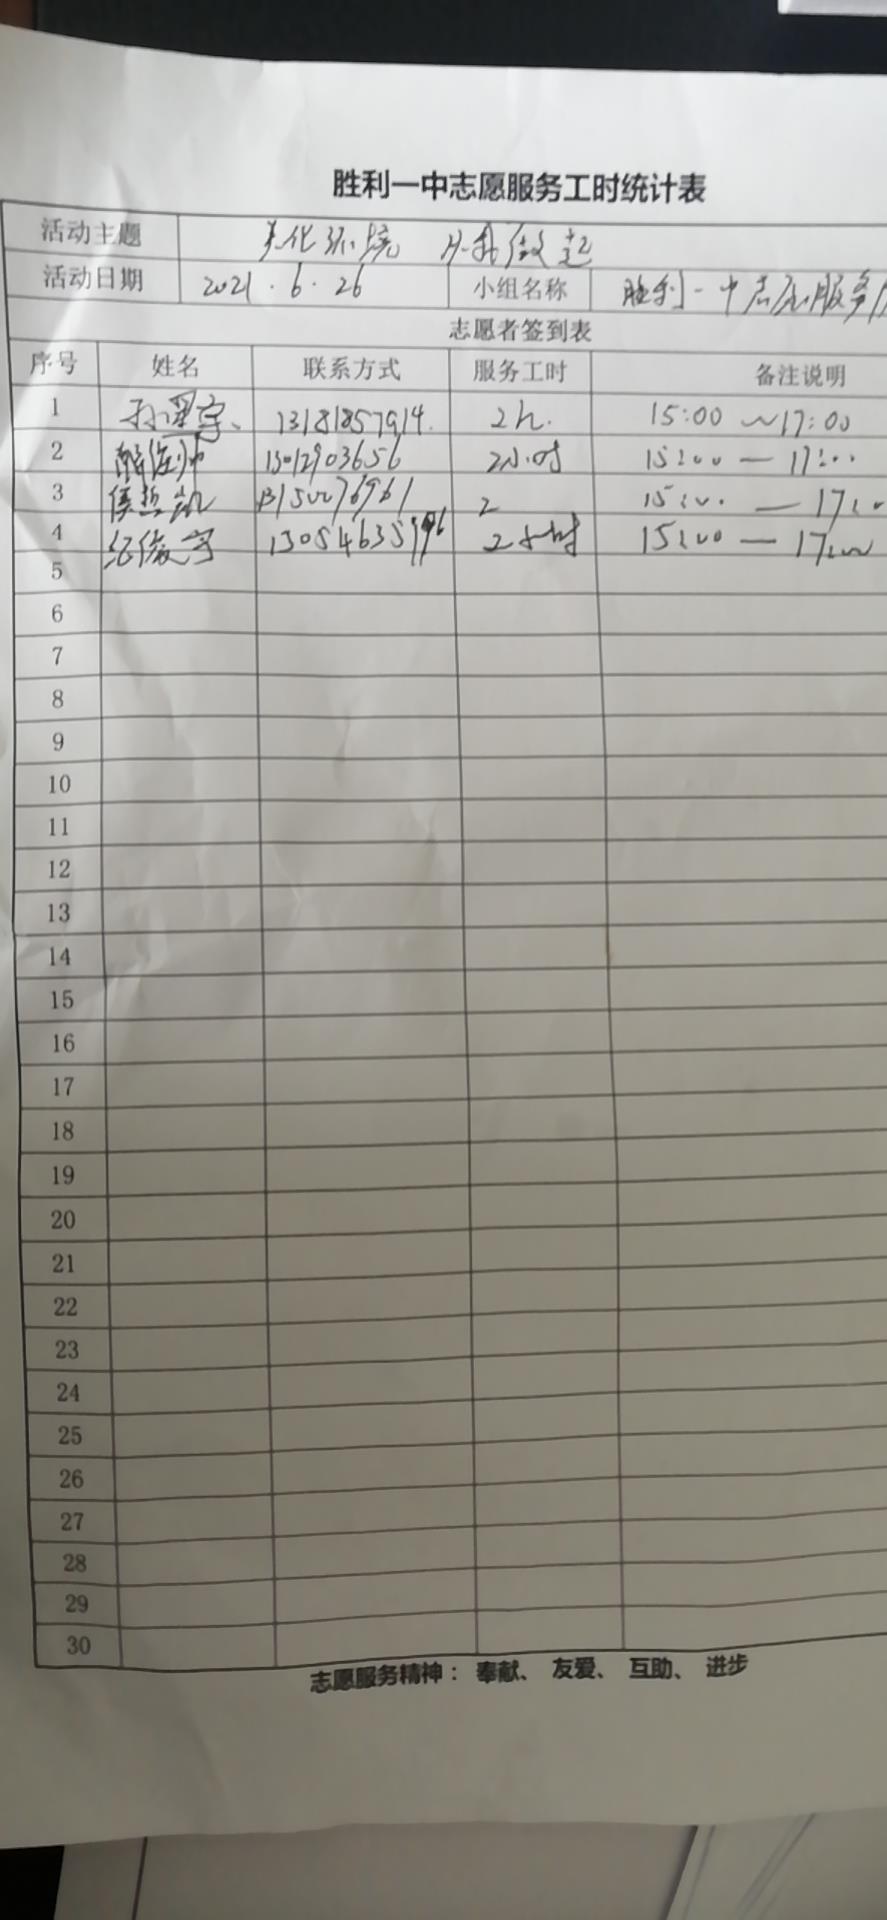 胜利一中志愿服务工时统计表
活动主题 美化环境 从我做起
活动日期 2021.6.26 小组名称 胜利一中志愿服务
志愿者签到表
序号 姓名 联系方式 服务工时 备注说明
1 13181857914. 2h. 15:00 ~17:00
2 13012903656 2小时 15:00 — 17:00
3 侯哲凯 2 15:00. — 17:00
4 纪俊宇 2小时 15:00 — 17:00
5
6
7
8
9
10
11
12
13
14
15
16
17
18
19
20
21
22
23
24
25
26
27
28
29
30
志愿服务精神： 奉献、 友爱、 互助、 进步